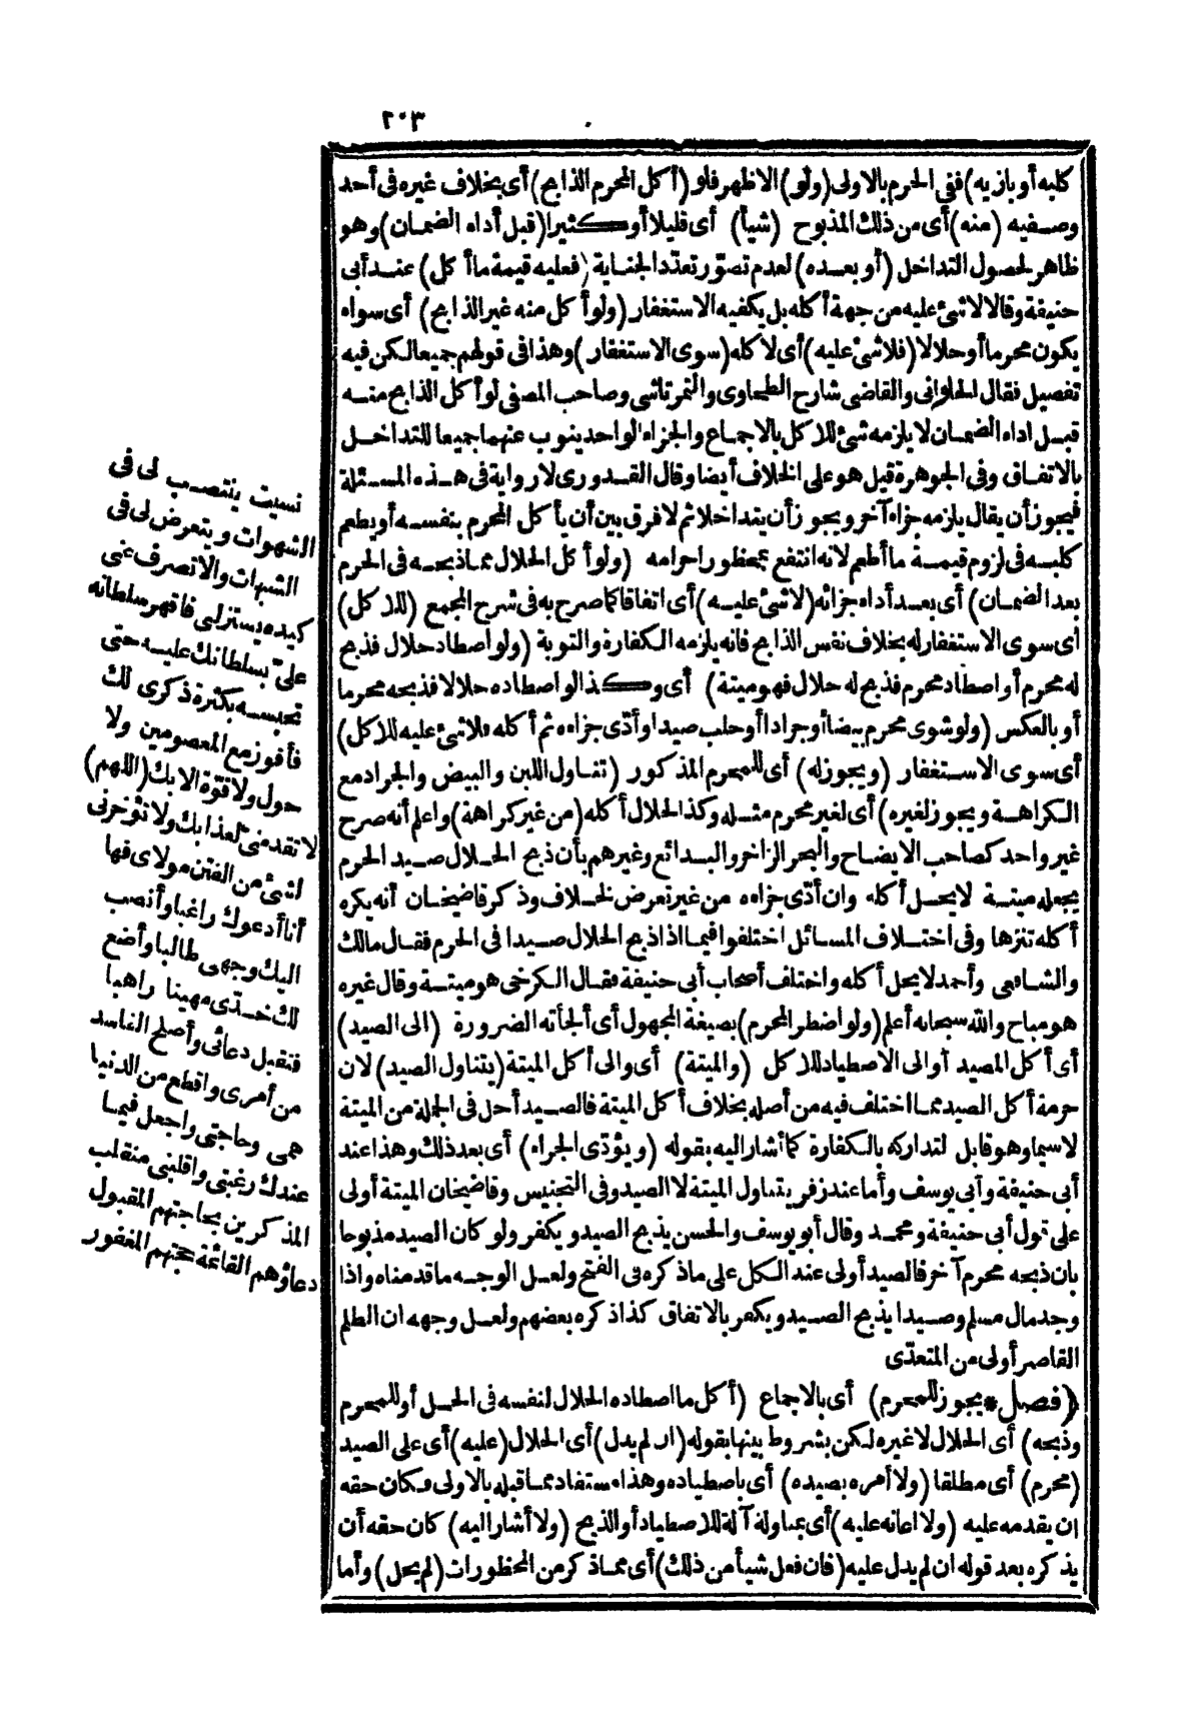 ٢٠٣
كلبه أو بازيه) ففي الحرم بالاولى (ولو) الاظهر فلو (أكل المحرم الذابح) أى بخلاف غيره فى أحد
وصفيه (منه) أى من ذلك المذبوح (شيأ) أى قليلا أو كثيرا (قبل أداء الضمان) وهو
ظاهر لحصول التداخل (أو بعده) لعدم تصوّر تعدّد الجناية (فعليه قيمة ما أكل) عند أبى
حنيفة وقالا لا شئ عليه من جهة أكله بل يكفيه الاستغفار (ولو أكل منه غير الذابح) أى سواء
يكون محرما أو حلالا (فلا شئ عليه) أى لاكله (سوى الاستغفار) وهذا فى قولهم جميعا لكن فيه
تفصيل فقال الحلوانى والقاضى شارح الطحاوى والتمرتاشى وصاحب المصفى لو أكل الذابح منه
قبل اداء الضمان لا يلزمه شئ للاكل بالاجماع والجزاء الواحد ينوب عنهما جميعا للتداخل
بالاتفاق وفى الجوهرة قيل هو على الخلاف أيضا وقال القدورى لا رواية فى هذه المسئلة
فيجوز أن يقال يلزمه جزاء آخر ويجوز أن يتداخلا ثم لا فرق بين أن يأكل المحرم بنفسه أو يطعم
كلبه فى لزوم قيمة ما أطعم لانه انتفع بمحظور احرامه (ولو أكل الحلال مما ذبحه فى الحرم
بعد الضمان) أى بعد أداء جزائه (لا شئ عليه) أى اتفاقا كما صرح به فى شرح المجمع (للاكل)
اى سوى الاستغفار له بخلاف نفس الذابح فانه يلزمه الكفارة والتوبة (ولو اصطاد حلال فذبح
له محرم أو اصطاد محرم فذبح له حلال فهو ميتة) أى وكذا لو اصطاده حلالا فذبحه محرما
أو بالعكس (ولو شوى محرم بيضا أو جرادا أو حلب صيدا وأدّى جزاءه ثم أكله فلا شئ عليه للاكل)
أى سوى الاستغفار (ويجوز له) أى للمحرم المذكور (تناول اللبن والبيض والجراد مع
الكراهة ويجوز لغيره) أى لغير محرم مثله وكذا الحلال أكله (من غير كراهة) واعلم أنه صرح
غير واحد كصاحب الايضاح والبحر الزاخر والبدائع وغيرهم بأن ذبح الحلال صيد الحرم
يجعله ميتة لا يحل أكله وان أدّى جزاءه من غير تعرض لخلاف وذكر قاضيخان أنه يكره
أكله تنزها وفى اختلاف المسائل اختلفوا فيما اذا ذبح الحلال صيدا فى الحرم فقال مالك
والشافعى وأحمد لا يحل أكله واختلف أصحاب أبى حنيفة فقال الكرخى هو ميتة وقال غيره
هو مباح والله سبحانه أعلم (ولو اضطر المحرم) بصيغة المجهول أى ألجأته الضرورة (الى الصيد)
أى أكل المصيد أو الى الاصطياد للاكل (والميتة) أى والى أكل الميتة (يتناول الصيد) لان
حرمة أكل الصيد مما اختلف فيه من أصله بخلاف أكل الميتة فالصيد أحل فى الجملة من الميتة
لاسيما وهو قابل لتداركه بالكفارة كما أشار اليه بقوله (ويؤدّى الجزاء) أى بعد ذلك وهذا عند
أبى حنيفة وأبى يوسف وأما عند زفر يتناول الميتة لا الصيد وفى التجنيس وقاضيخان الميتة أولى
على قول أبى حنيفة ومحمد وقال أبو يوسف والحسن يذبح الصيد ويكفر ولو كان الصيد مذبوحا
بان ذبحه محرم آخر فالصيد أولى عند الكل على ما ذكره فى الفتح ولعل الوجه ما قدمناه واذا
وجد مال مسلم وصيدا يذبح الصيد ويكفر بالاتفاق كذا ذكره بعضهم ولعل وجهه ان الظلم
القاصر أولى من المتعدّى
(فصل * يجوز للمحرم) أى بالاجماع (أكل ما اصطاده الحلال لنفسه فى الحل أو للمحرم
وذبحه) أى الحلال لا غيره لكن بشروط بينها بقوله (ان لم يدل) أى الحلال (عليه) أى على الصيد
(محرم) أى مطلقا (ولا أمره بصيده) أى باصطياده وهذا مستفاد مما قبله بالاولى وكان حقه
ان يقدمه عليه (ولا اعانه عليه) أى بمناولة آلة للاصطياد أو الذبح (ولا أشار اليه) كان حقه أن
يذكره بعد قوله ان لم يدل عليه (فان فعل شيأ من ذلك) أى مما ذكر من المحظورات (لم يحل) وأما
نسيت ينتصب لى فى
الشهوات ويتعرض لى فى
الشبهات والا تصرف عنى
كيده يستزلى فاقهر سلطانه
علىّ بسلطانك عليه حتى
تحبسه بكثرة ذكرى لك
فأفوز مع المعصومين ولا
حول ولا قوّة الا بك (اللهم)
لا تقدمنى لعذابك ولا تؤخرنى
لشئ من الفتن مولاى فها
أنا أدعوك راغبا وأنصب
اليك وجهى طالبا وأضع
لك خدّى مهينا راهبا
فتقبل دعائى وأصلح الفاسد
من أمرى واقطع من الدنيا
همى وحاجتى واجعل فيما
عندك رغبتى واقلبنى منقلب
المذكرين بحاجتهم المقبول
دعاؤهم القائمة حجتهم المغفور